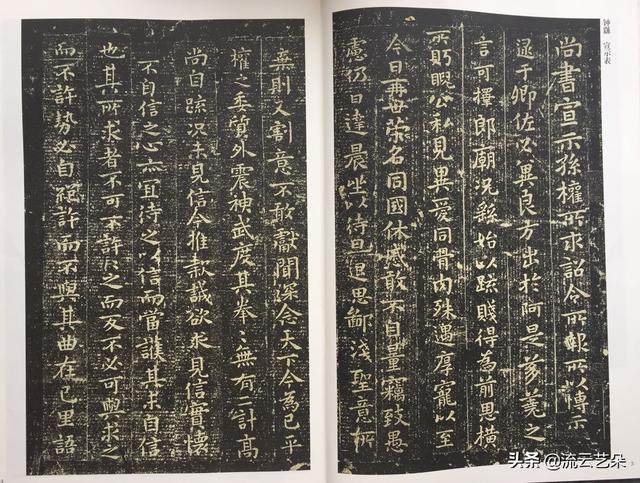 钟繇 宣示表
尚書宣示孫權所求詔令所報所以博示
逮于卿佐必冀良方出於阿是芻蕘之
言可擇郎廟況繇始以疏賤得為前思橫
所眄睨公私見異愛同骨肉殊遇厚寵以至
今日再世榮名同國休慼敢不自量竊致愚
慮仍日達晨坐以待旦退思鄙淺聖意所
棄則又割意不敢獻聞深念天下今為已平
權之委質外震神武度其拳〻無有二計高
尚自疏況未見信今推款誠欲求見信實懷
不自信之心亦宜待之以信而當護其未自信
也其所求者不可不許許之而反不必可與求之
而不許勢必自絕許而不與其曲在己里語
3
4
头条 @流云艺朵